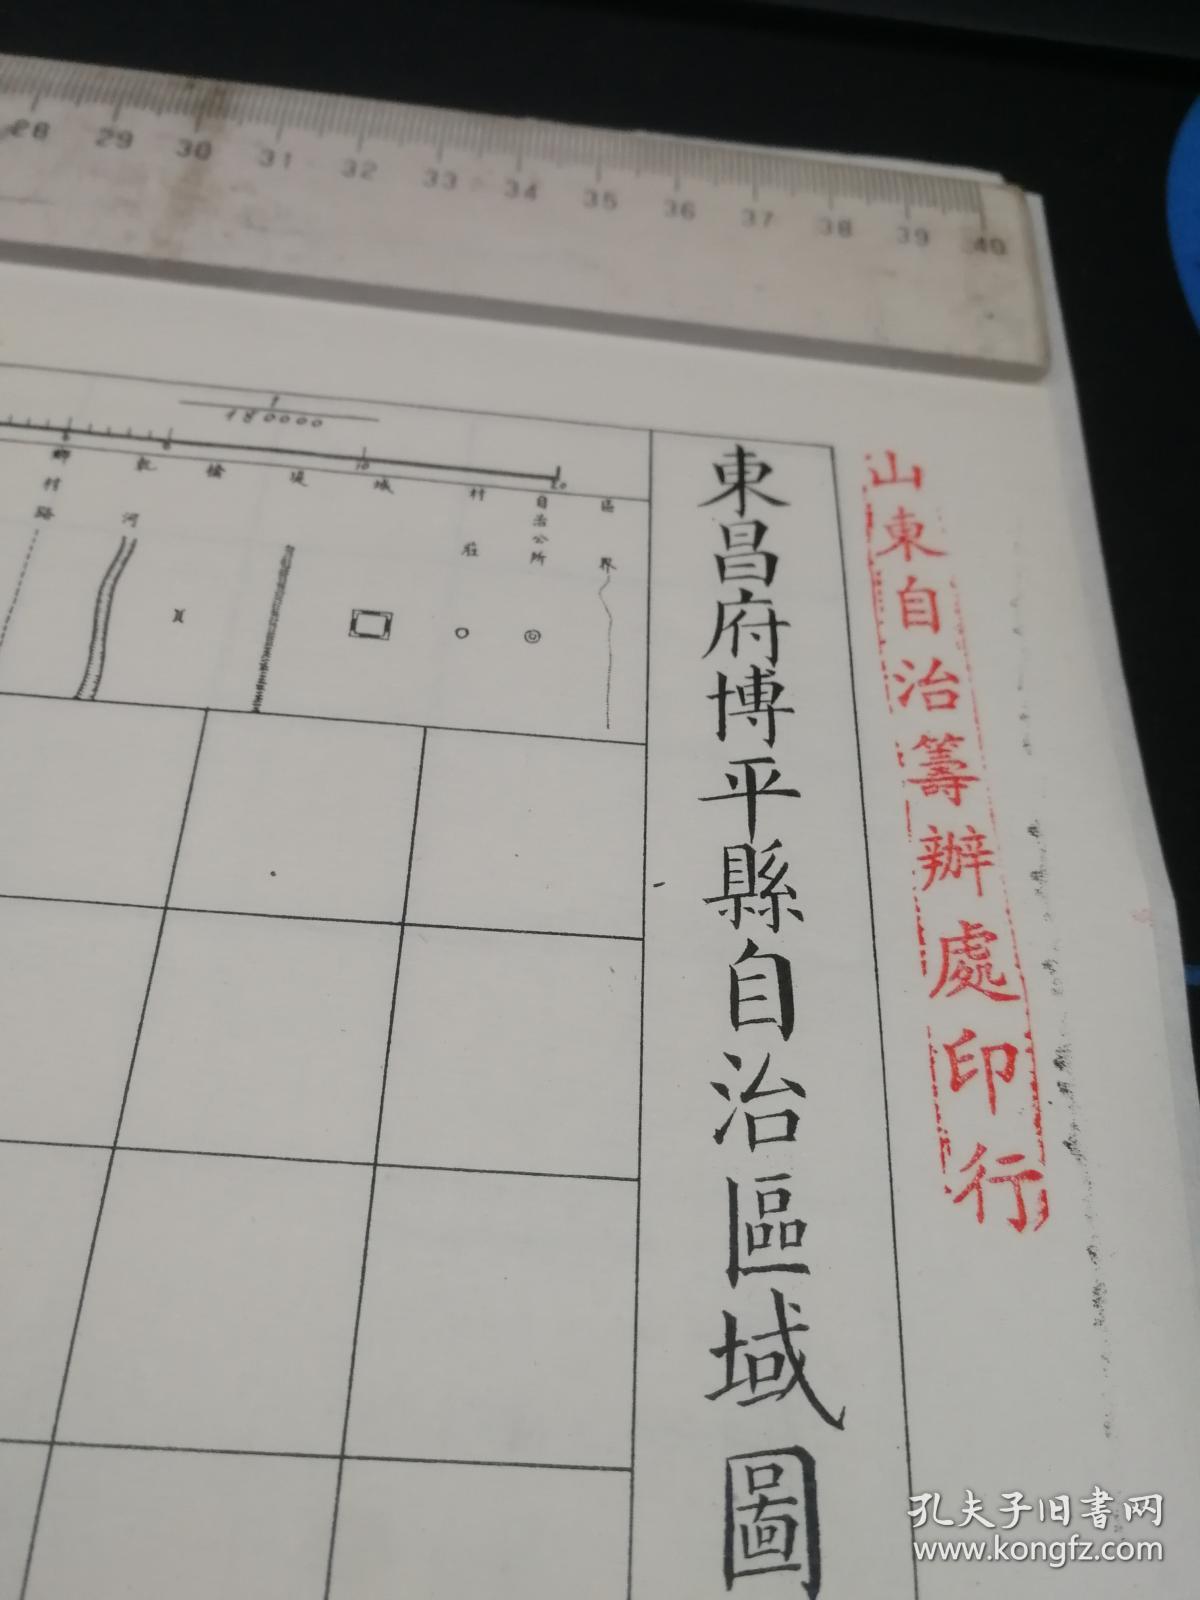 28 29 30 31 32 33 34 35 36 37 38 39 40
山東自治籌辦處印行
東昌府博平縣自治區域圖
1
180000
10
20
區界
自治公所
村莊
城
堤
河
鄉村路
孔夫子旧书网
www.kongfz.com